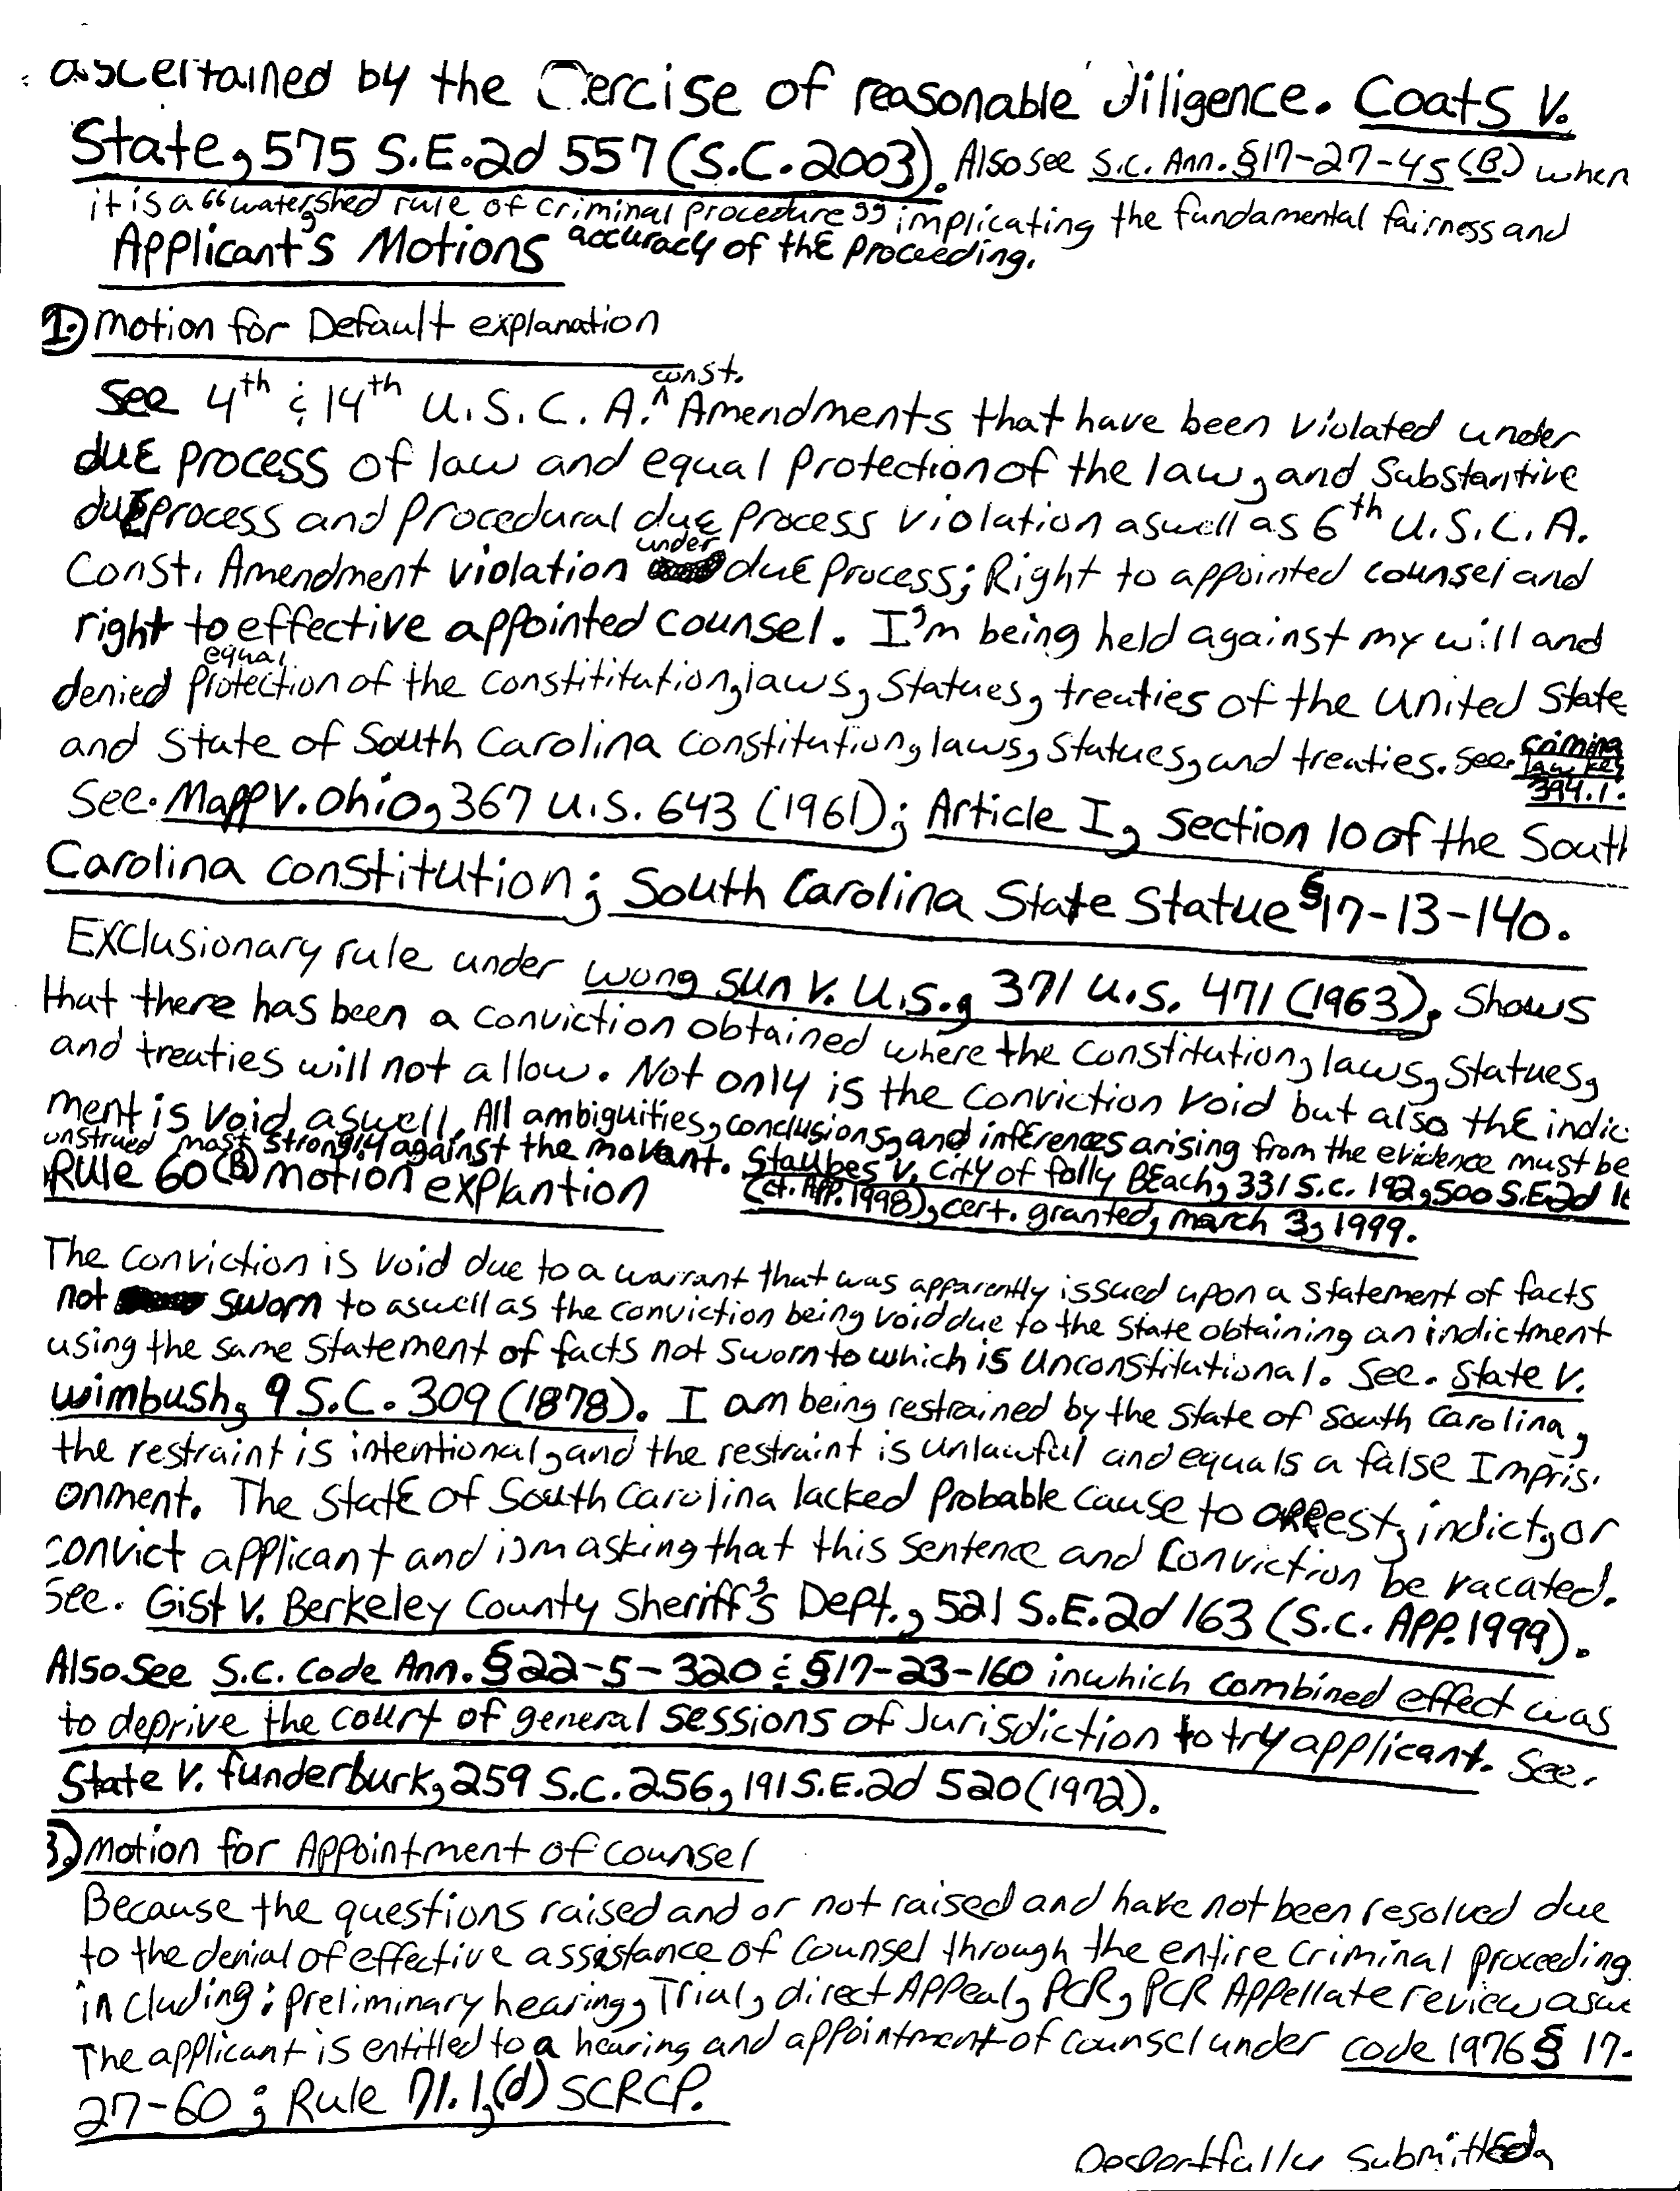 ascertained by the Exercise of reasonable diligence. Coats v.
State, 575 S.E.2d 557 (S.C. 2003). Also see S.C. Ann. §17-27-45 (B) when
it is a "watershed rule of criminal procedure" implicating the fundamental fairness and
accuracy of thE proceeding.
Applicant's Motions
1.) Motion for Default explanation
See 4th & 14th U.S.C.A. const. Amendments that have been violated under
duE process of law and equal protection of the law, and Substantive
duE process and procedural due process violation aswell as 6th U.S.C.A.
Const. Amendment violation under duE process; Right to appointed counsel and
right to effective appointed counsel. I'm being held against my will and
denied equal protection of the constititution, laws, Statues, treaties of the United State
and State of South Carolina constitution, laws, Statues, and treaties. See. criminal law key 394.1.
See. Mapp v. Ohio, 367 U.S. 643 (1961); Article I, Section 10 of the South
Carolina constitution; South Carolina State Statue §17-13-140.
Exclusionary rule under wong sun v. U.S., 371 U.S. 471 (1963), Shows
that there has been a conviction obtained where the constitution, laws, Statues,
and treaties will not allow. Not only is the conviction void but also thE indic
ment is void aswell. All ambiguities, conclusions, and infErences arising from the evidence must be
onstrued most strongly against the movant. Staubes v. City of folly BEach, 331 S.C. 192, 500 S.E.2d 16
(ct. App. 1998), cert. granted, march 3, 1999.
Rule 60(B) motion explantion
The conviction is void due to a warrant that was apparently issued upon a statement of facts
not sworn to aswell as the conviction being void due to the State obtaining an indictment
using the same statement of facts not sworn to which is Unconstitutional. See. State v.
wimbush, 9 S.C. 309 (1878). I am being restrained by the State of South Carolina,
the restraint is intentional, and the restraint is unlawful and equals a false Impris.
onment. The StatE of South Carolina lacked probable cause to arrest, indict, or
convict applicant and i'm asking that this sentence and conviction be vacated.
See. Gist v. Berkeley County Sheriff's Dept., 521 S.E.2d 163 (S.C. App. 1999).
Also See S.C. Code Ann. §22-5-320 & §17-23-160 inwhich combined effect was
to deprive the court of general sessions of Jurisdiction to try applicant. See.
State v. funderburk, 259 S.C. 256, 191 S.E.2d 520 (1972).
3.) Motion for Appointment of counsel
Because the questions raised and or not raised and have not been resolved due
to the denial of effective assistance of counsel through the entire criminal proceeding
including: preliminary hearing, Trial, direct Appeal, PCR, PCR Appellate review asw
The applicant is entitled to a hearing and appointment of counsel under code 1976 § 17-
27-60; Rule 71.1,(d) SCRCP.
Respectfully Submitted,